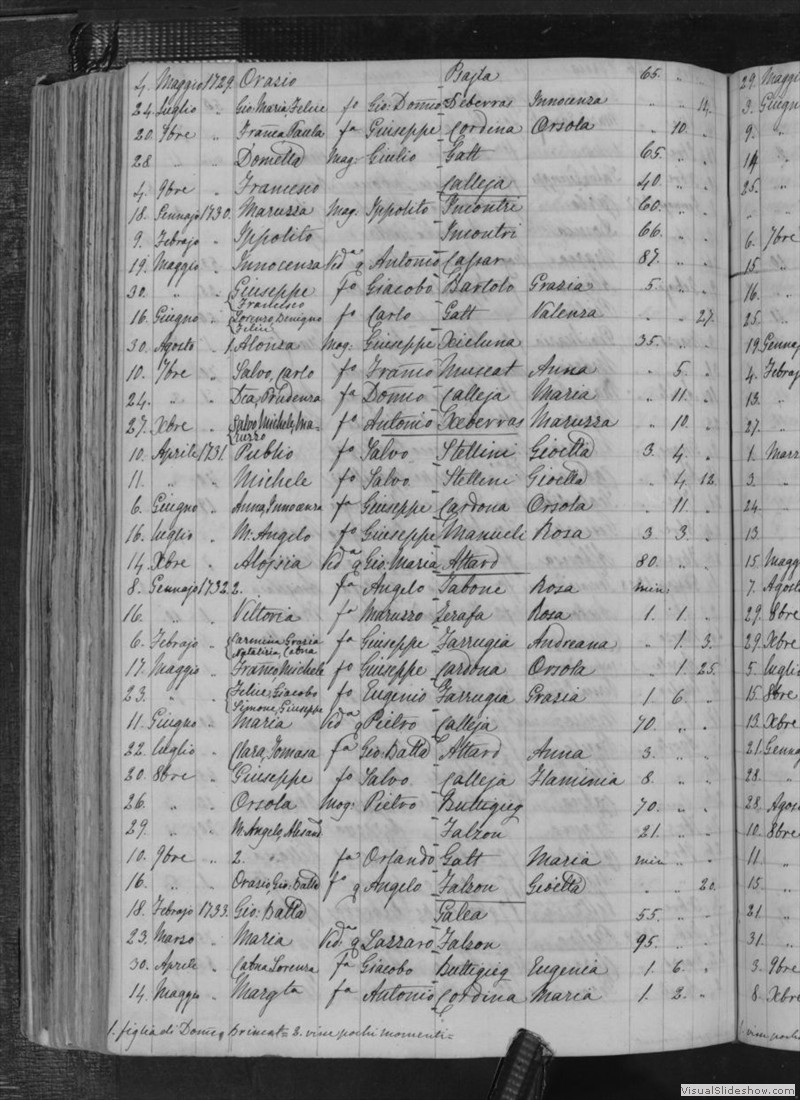 4. Maggio 1729. Orasio Bajta 65. " "
24. Luglio " Gio: Maria, Felice fo Gio: Domco Xeberras Innocenza " " 14.
20. 7bre " Franca Paula fa Giuseppe Cordina Orsola " 10. "
28 " " Dometta Mag: Giulio Gatt 65. " "
4. 9bre " Francesco Calleja 40. " "
18. Gennajo 1730. Maruzza Mag: Ippolito Incontri 60. " "
9. Febrajo " Ippolito Incontri 66. " "
19. Maggio " Innocenza Veda q Antonio Caspar 87. " "
30. " " Giuseppe fo Giacobo Bartolo Grazia 5. " "
16. Giugno " Francesco Lorenzo, Benigno Felice fo Carlo Gatt Valenza " " 27.
30. Agosto " 1. Alonza Mog: Giuseppe Xicluna 35. " "
10. 7bre " Salvo, Carlo fo Franco Muscat Anna " 5. "
24. " " Dea, Prudenza fa Domco Calleja Maria " 11. "
27. Xbre " Salvo, Michele, Maruzzo fo Antonio Xeberras Maruzza " 10. "
10. Aprile 1731. Publio fo Salvo Stellini Gioetta 3. 4. "
11. " " Michele fo Salvo Stellini Gioetta " 4. 12.
6. Giugno " Anna, Innocenza fa Giuseppe Cardona Orsola " 11. "
16. Luglio " M. Angelo fo Giuseppe Manueli Rosa 3 3. "
14. Xbre " Aloisia Veda q Gio: Maria Attard 80. " "
8. Gennajo 1732. 2. fa Angelo Tabone Rosa min:
16. " " Vittoria fa Maruzzo Zerafa Rosa 1. 1. "
6. Febrajo " Carmina, Grazia Natalizia, Catna fa Giuseppe Farrugia Andreana " 1. 3.
17. Maggio " Franco, Michele fo Giuseppe Cardona Orsola " 1. 25.
23. " " Felice, Giacobo Simone, Giuseppe fo Eugenio Farrugia Grazia 1 6. "
11. Giugno " Maria Veda q Pietro Calleja 70. " "
22. Luglio " Clara, Tomasa fa Gio: Batta Attard Anna 3. " "
20. 8bre " Giuseppe fo Salvo Calleja Flaminia 8. " "
26. " " Orsola Mog: Pietro Buttigieg 70. " "
29. " " M. Angelo, Alesand Falzon 21. " "
10. 9bre " 2. fa Orlando Gatt Maria min " "
16. " " Orasio, Gio: Batta fo q Angelo Falzon Gioetta " " 20.
18. Febrajo 1733. Gio: Batta Galea 55. " "
23. Marzo " Maria Veda q Lazzaro Falzon 95. " "
30. Aprile " Catna, Lorenza fa Giacobo Buttigieg Eugenia 1. 6. "
14. Maggio " Margta fa Antonio Cordina Maria 1. 2. "
1. figlia di Domco Brincat = 2. visse pochi momenti =
29. Maggi
3. Giugn
9. "
14
25. "
" "
6. 7bre
15 "
16. "
25. "
19. Gennaj
4. Febraj
13. "
27. "
1. Marz
3. "
24. "
13. "
15. Maggi
7. Agost
29. 8bre
29. Xbre
5. Luglio
15. 8bre
13. Xbre
21. Genna
28. "
28. Agos
10. 8bre
11 "
15. "
21. "
31. "
3. 9bre
8. Xbre
VisualSlideshow.com